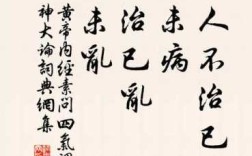 人不治已
未病
治已亂
未亂
黄帝内經素問四氣調
神大論詞典網集